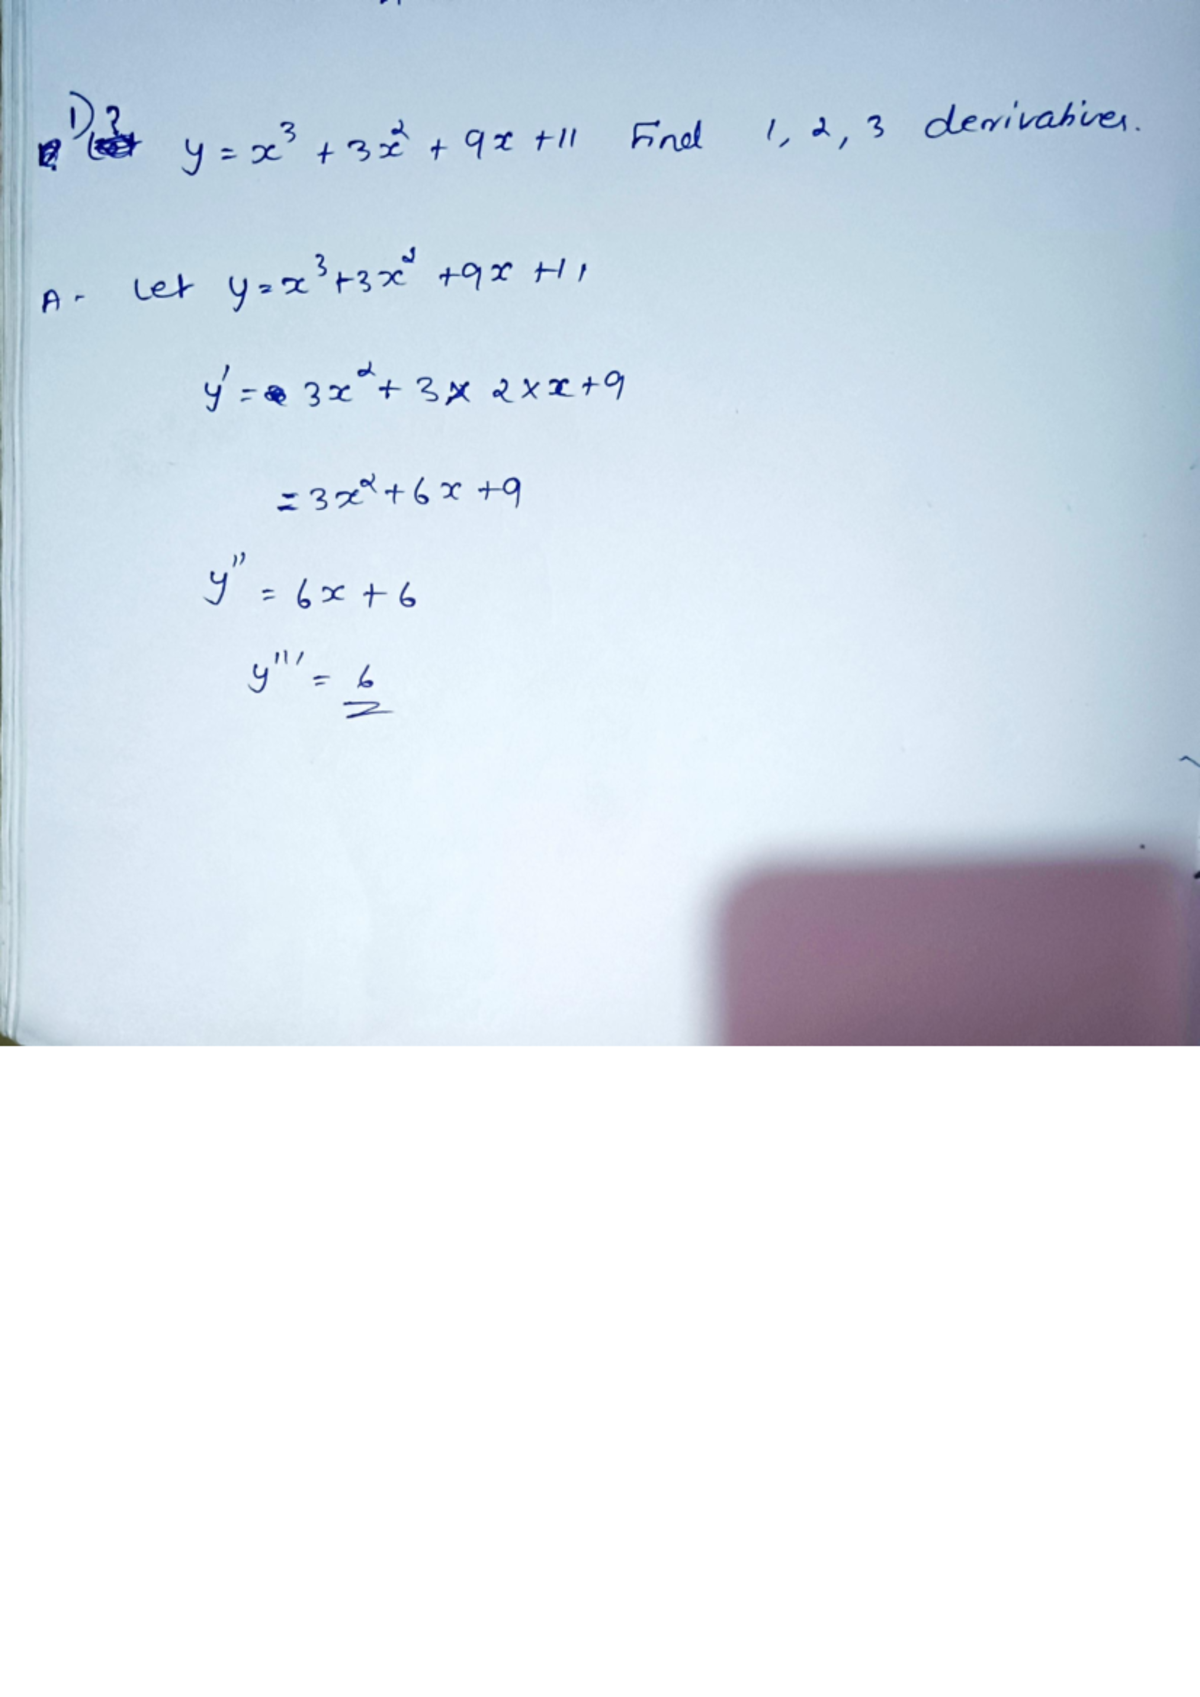 1) ? y = x³ + 3x² + 9x + 11 Find 1, 2, 3 derivatives.
A - Let y = x³ + 3x² + 9x + 11
y' = 3x² + 3 × 2 × x + 9
= 3x² + 6x + 9
y'' = 6x + 6
y''' = 6